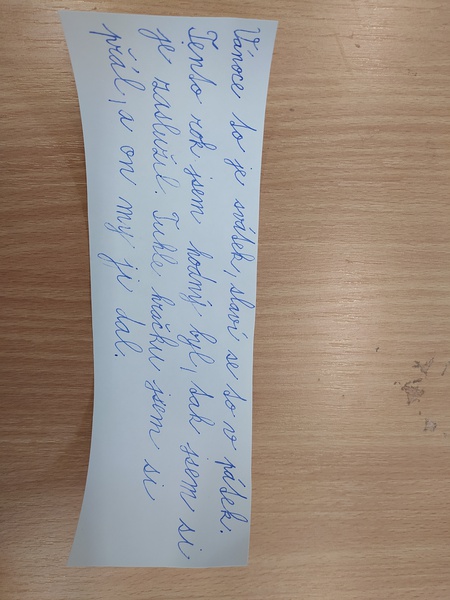 Vánoce to je svátek, slaví se to v pátek.
Tento rok jsem hodný byl, tak jsem si
je zasloužil. Tuhle hračku jsem si
přál, a on my ji dal.